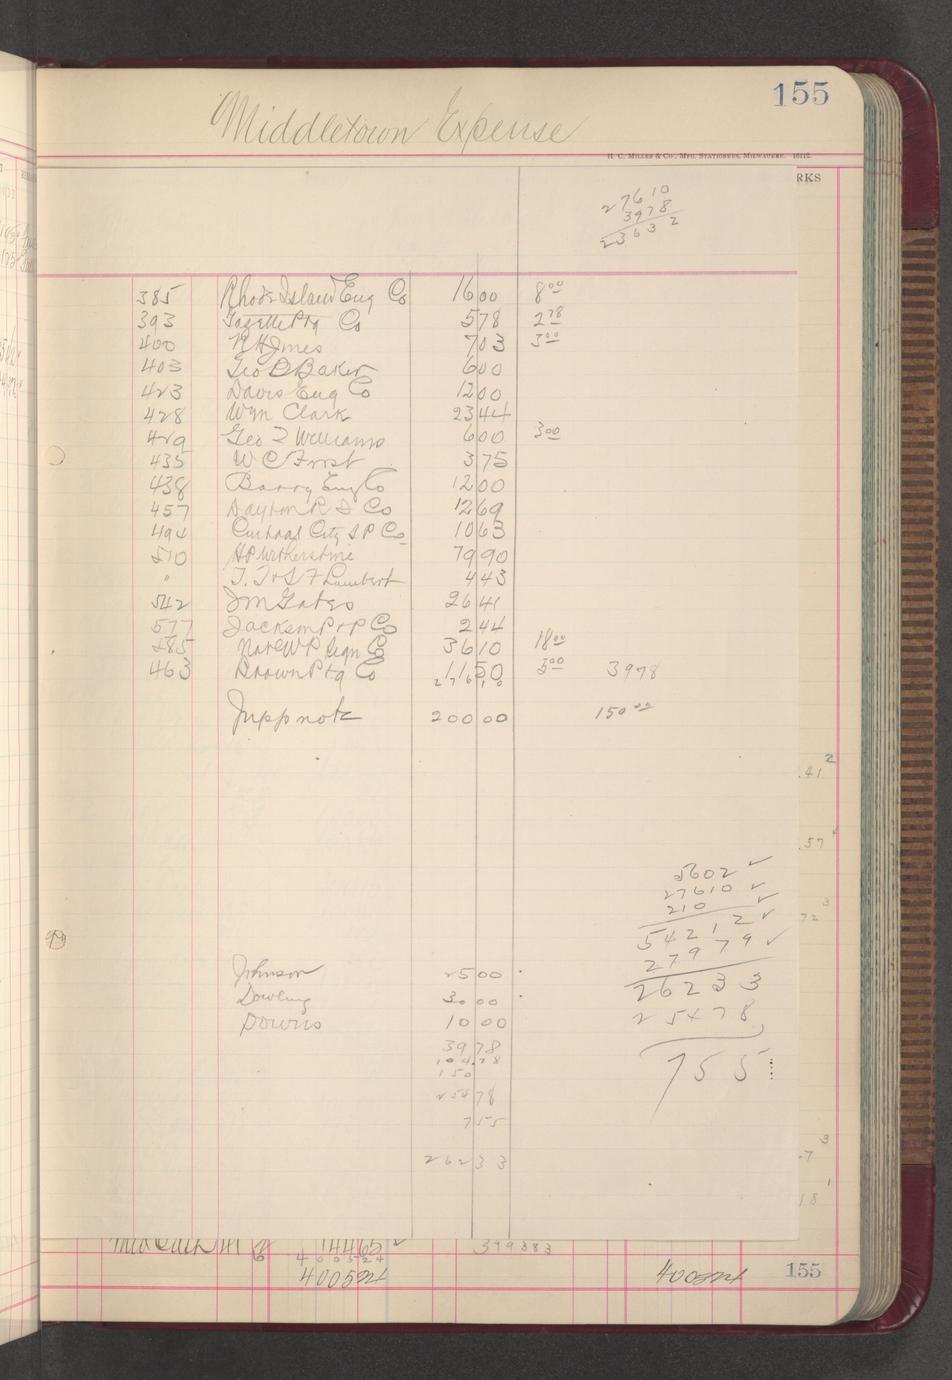 155
Middletown Expense
H. C. Miller & Co., Mfg. Stationers, Milwaukee. 16112.
RKS
27610
3978
23632
385 Rhode Island Eng Co 16 00 8 00
393 Gazette Ptg Co 5 78 2 78
400 R H Jones 7 03 3 00
403 Geo D Baker 6 00
423 Davis Eng Co 12 00
428 Wm Clark 23 44
429 Geo Z Williams 6 00 3 00
435 W C Frost 3 75
438 Barry Eng Co 12 00
457 Dayton P & Co 12 69
494 City S P Co 10 63
510 H P 79 90
" Lambert 4 43
542 J M Gates 26 41
577 Jackson P & P Co 2 44
585 W P Co 36 10 18 00
463 Brown Ptg Co 11 50 5 00 3978
276 10
Jupp note 200 00 150 00
.41 2
.57
5602 ✓
27610 ✓
210 ✓
54212 ✓
27979 ✓
26233
25478
755
72 3
Johnson 25 00
Dowling 3 00
Downs 10 00
39 78
104.78
150
254 78
7 55
262 33
.7 3
18 1
14465 ✓ 399383
400524
400524 400524 155